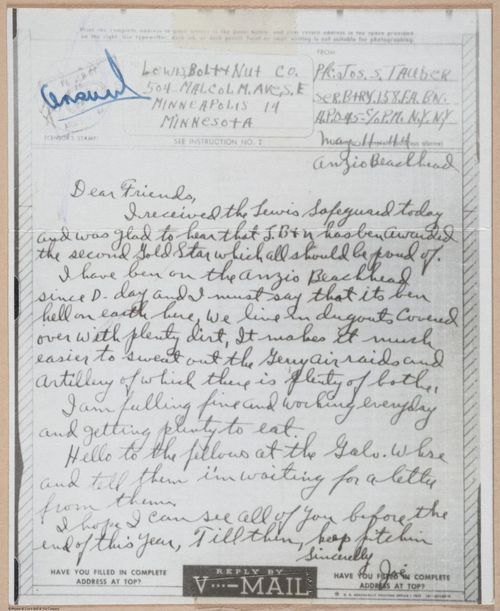 Print the complete address in plain block letters in the panel below, and your return address in the space provided
on the right. Use typewriter, dark ink, or dark pencil. Faint or small writing is not suitable for photographing.
FROM
Lewis Bolt & Nut Co.
Pfc. Jos. S. Tauber
504 Malcolm Ave S.E
Ser. Btry. 158 F.A. Bn.
Minneapolis 14
A.P.O 45-c/o P.M. N.Y. N.Y
Minnesota
May 11-44
answd
CENSOR'S STAMP
SEE INSTRUCTION NO. 2
Anzio Beachhead
Dear Friends,
I received the Lewis Safeguard today
and was glad to hear that L.B&N has ben Awarded
the second Gold Star which all should be proud of.
I have ben on the Anzio Beachhead
since D-day and I must say that its ben
hell on earth here, We live in dugouts covered
over with plenty dirt, It makes it much
easier to sweat out the Gerry air raids and
Artillery of which there is plenty of bothe,
I am fulling fine and working everyday
and getting plenty to eat.
Hello to the fellows at the Galv. Whse
and tell them i'm waiting for a letter
from them.
I hope I can see all of you before the
end of this year, Till then, keep pitchin
Sincerely
Joe
HAVE YOU FILLED IN COMPLETE
ADDRESS AT TOP?
REPLY BY
V···—MAIL
HAVE YOU FILLED IN COMPLETE
ADDRESS AT TOP?